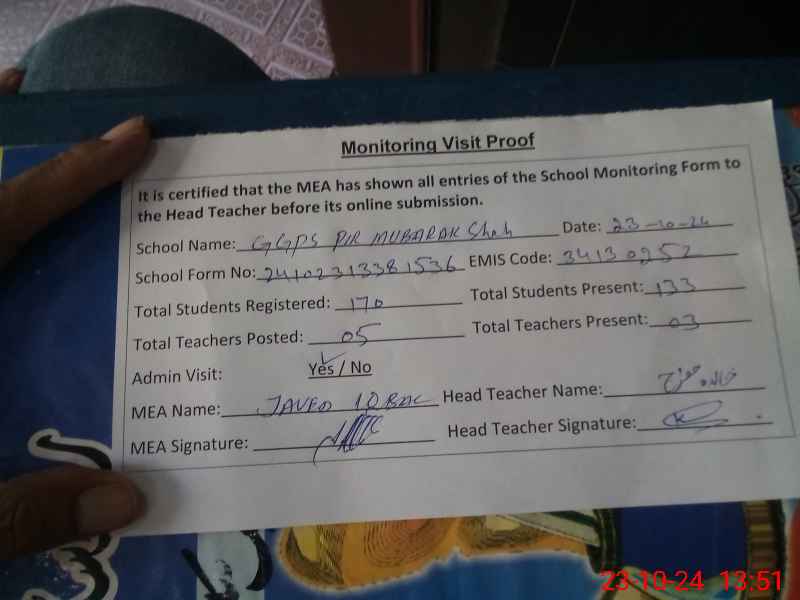 Monitoring Visit Proof
It is certified that the MEA has shown all entries of the School Monitoring Form to
the Head Teacher before its online submission.
School Name: GGPS PIR MUBARAK Shah Date: 23-10-24
School Form No: 24102313381536 EMIS Code: 34130252
Total Students Registered: 170 Total Students Present: 133
Total Teachers Posted: 05 Total Teachers Present: 03
Admin Visit: Yes / No
MEA Name: JAVED IQBAL Head Teacher Name:
MEA Signature: Head Teacher Signature:
23-10-24 13:51